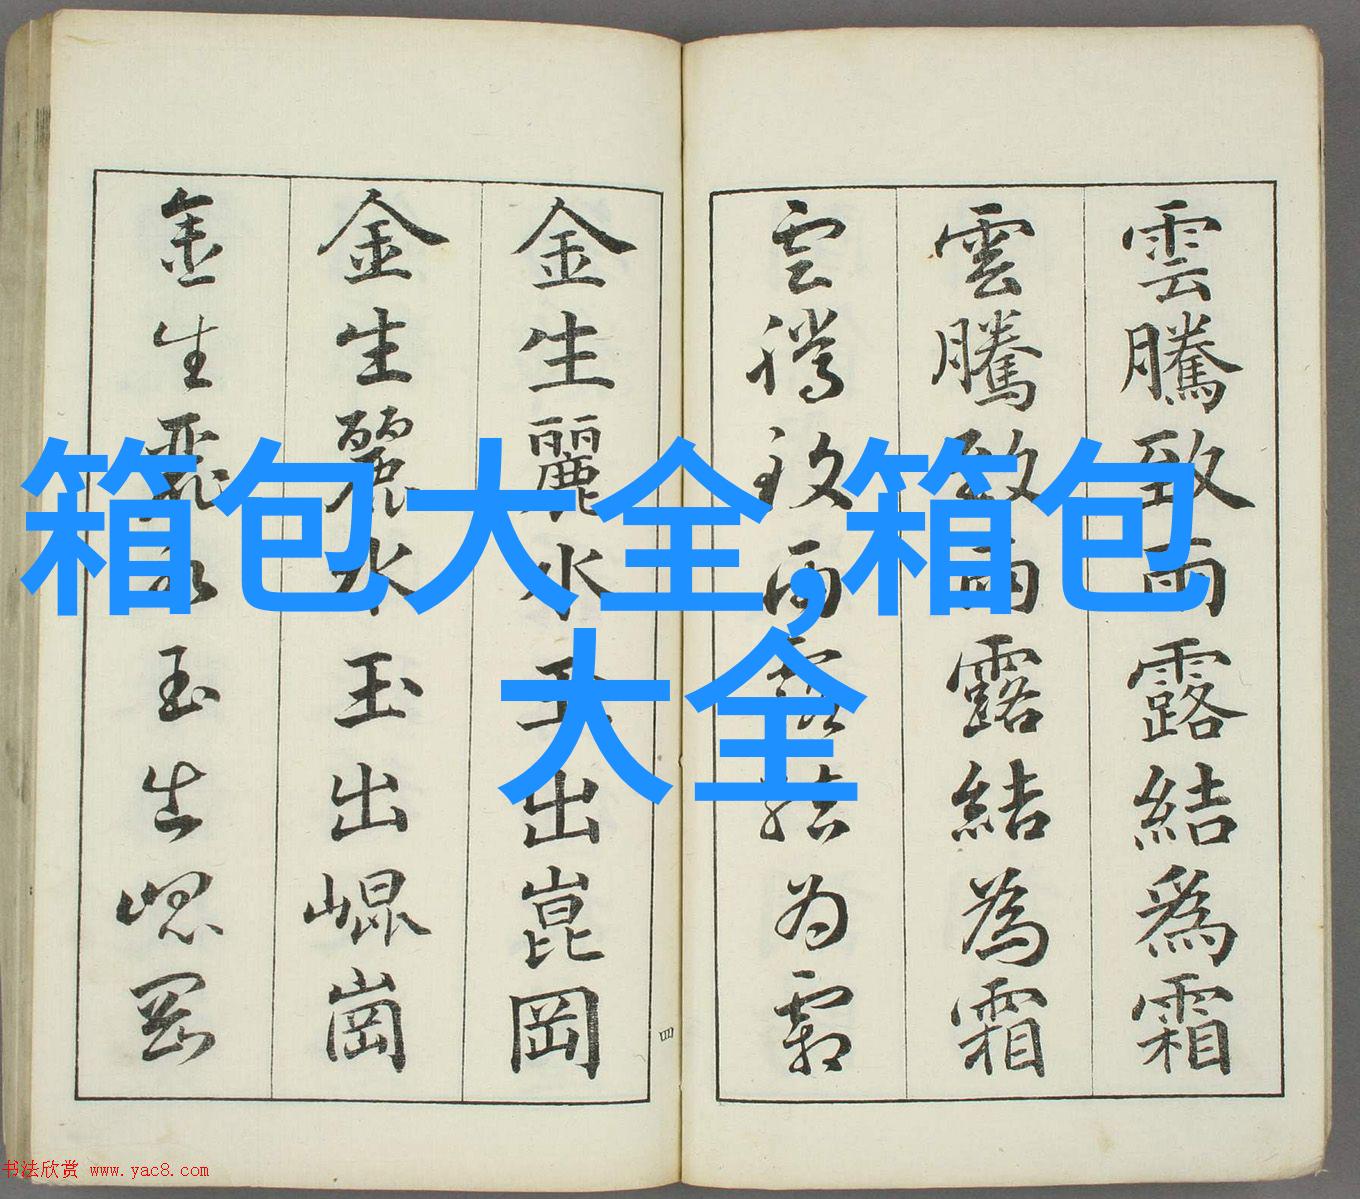 雲騰致雨露結爲霜
雲騰致雨露結為霜
雲騰致雨露结为霜
金生麗水玉出崑岡
金生麗水玉出崐崗
金生麗水玉出崐岡
四
箱包大全,箱包
大全
书法欣赏 www.yac8.com